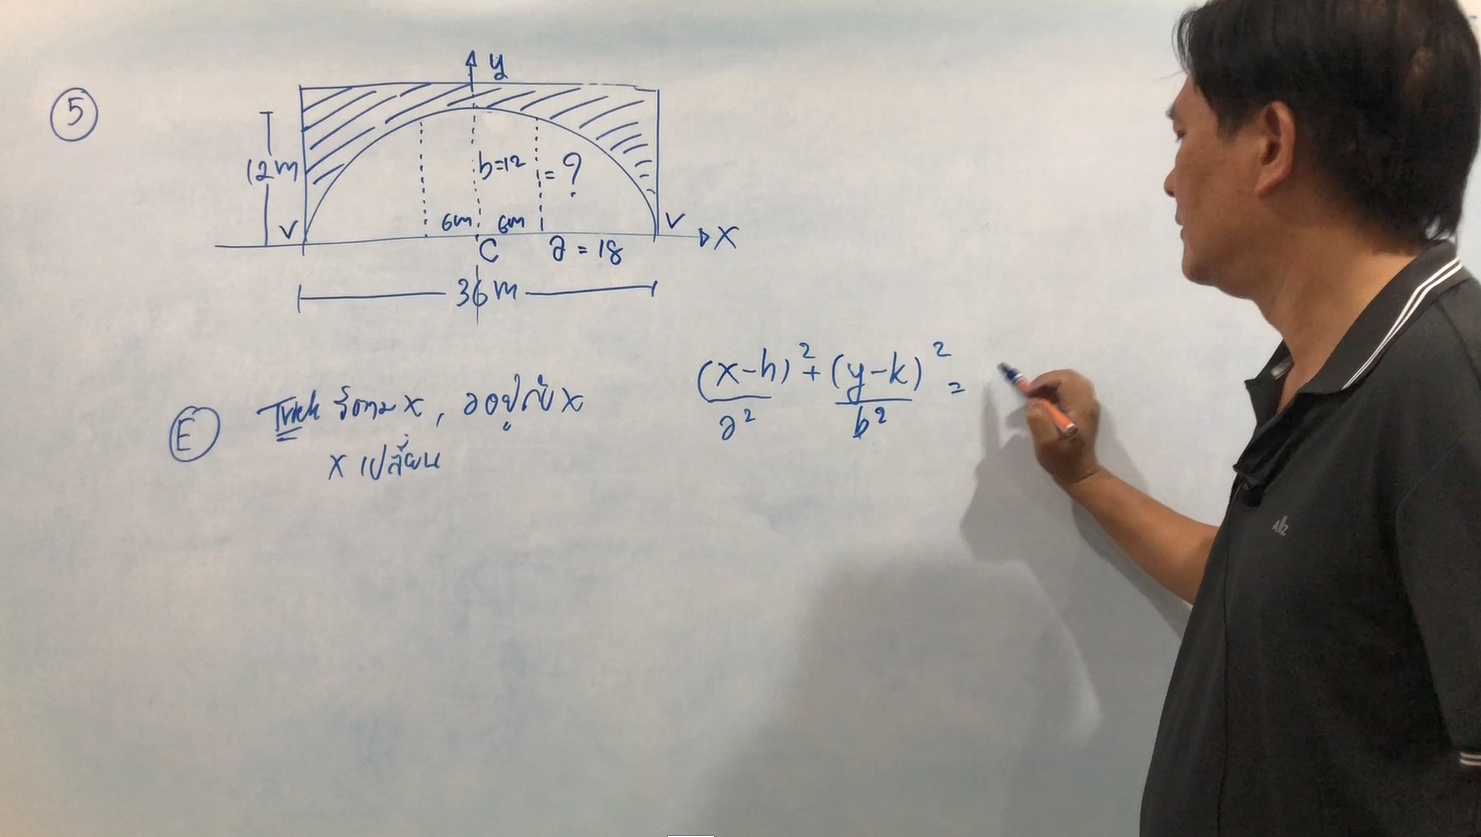 5
y
12m
b=12
= ?
V
6m
6m
V
X
C
a = 18
36m
E
Trick รีตาม x, a อยู่กับ x
x เปลี่ยน
(x-h)² + (y-k)² =
a² b²